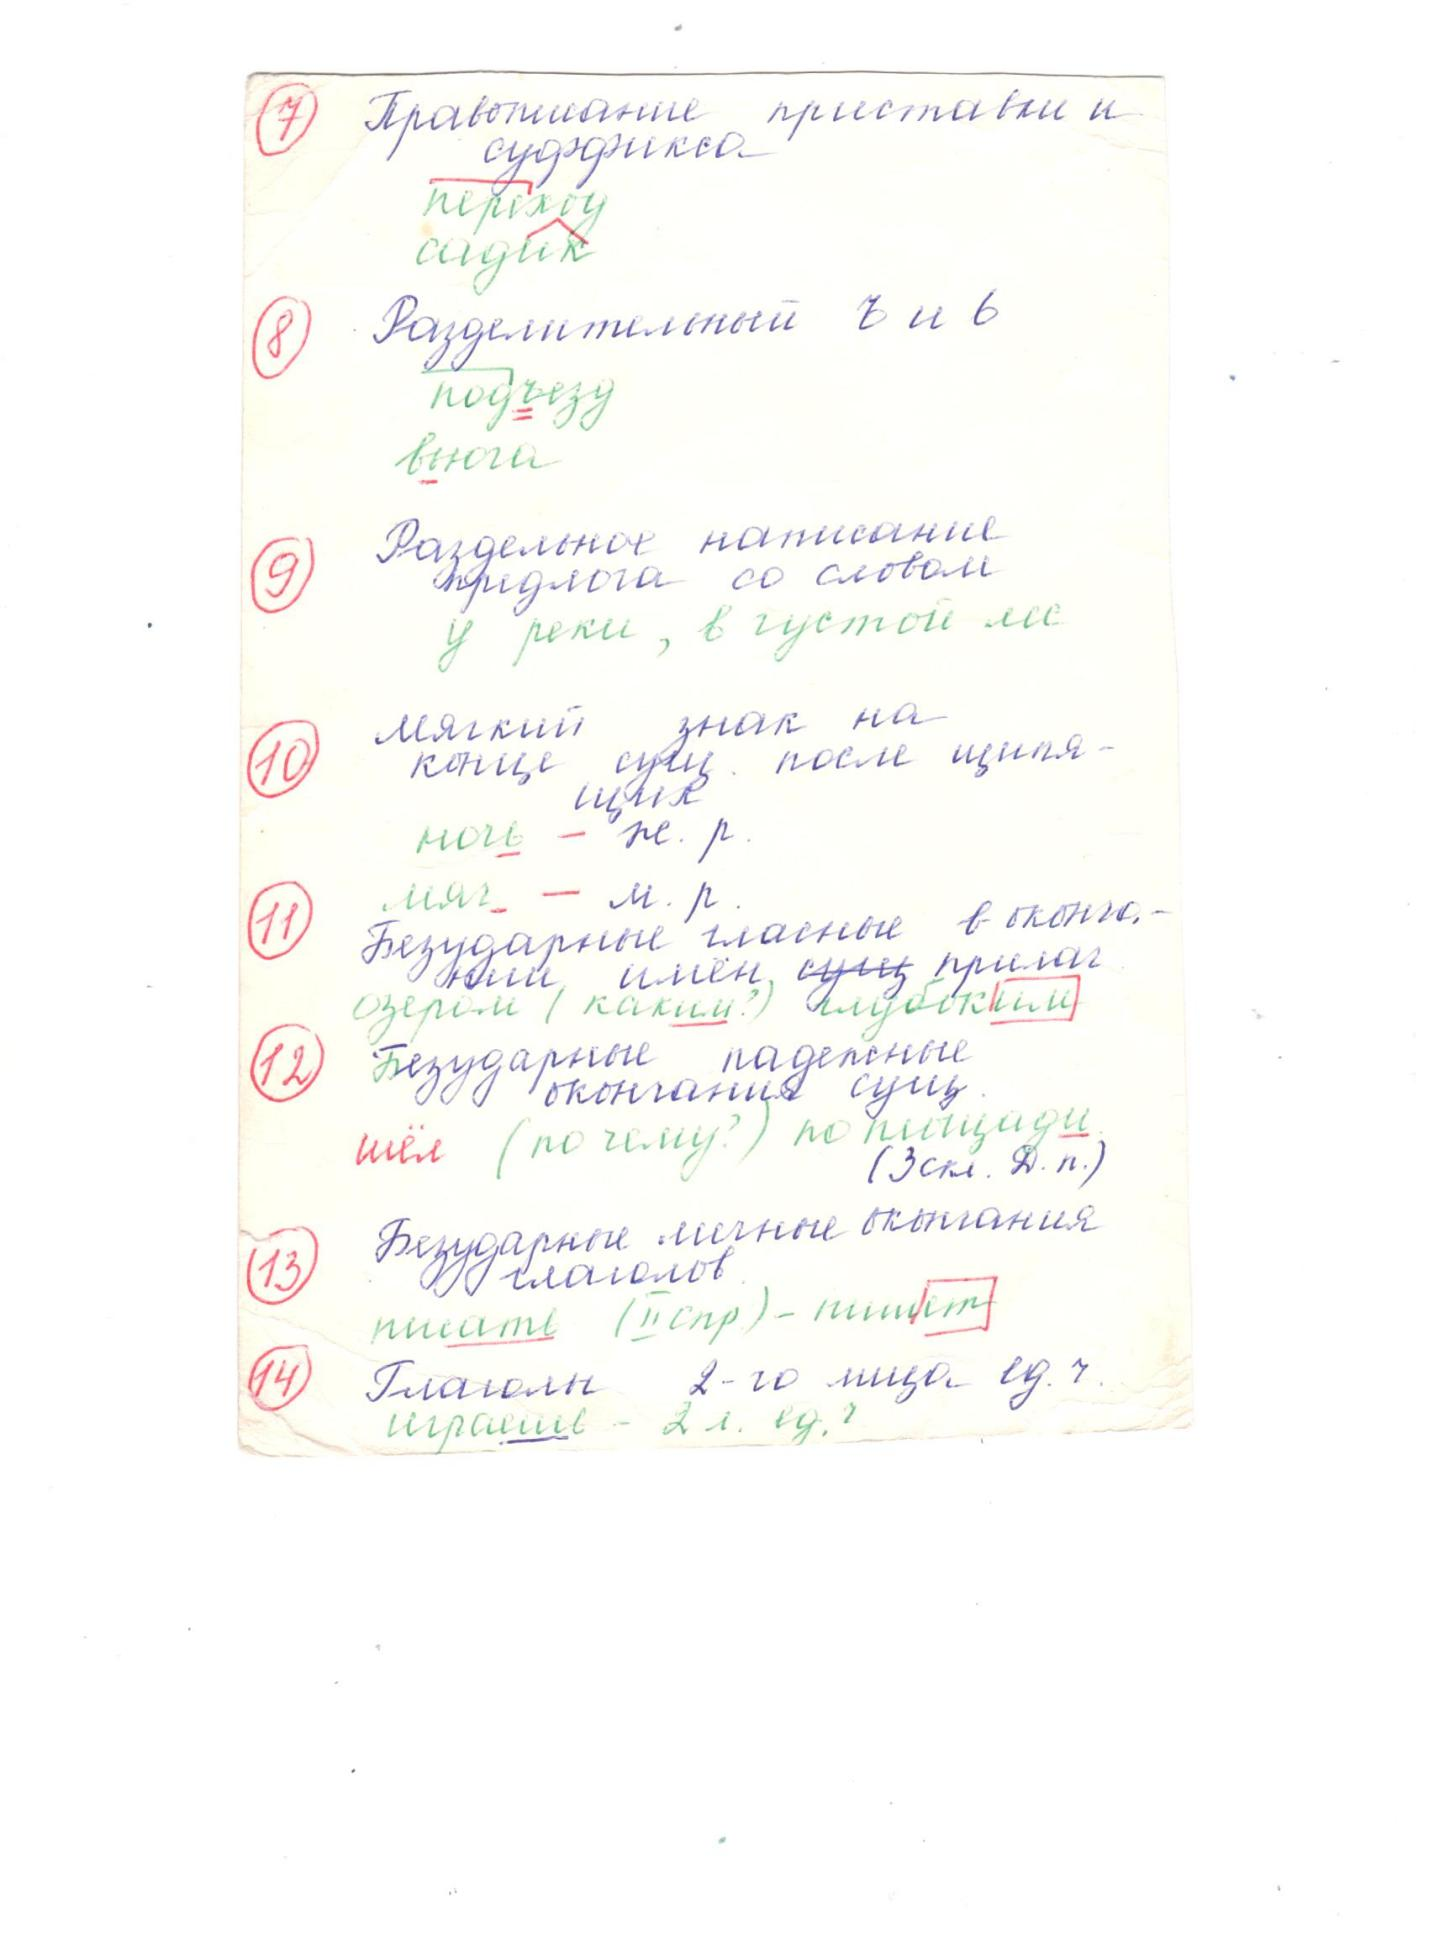 7 Правописание приставки и
суффикса
переход
садик
8 Разделительный ъ и ь
подъезд
вьюга
9 Раздельное написание
предлога со словом
у реки, в густой лес
10 Мягкий знак на
конце сущ. после шипя-
щих
ночь – ж. р.
мяч – м. р.
11 Безударные гласные в оконча-
нии имён сущ прилаг
озером (каким?) глубоким
12 Безударные падежные
окончания сущ.
шёл (по чему?) по площади
(3 скл. Д. п.)
13 Безударные личные окончания
глаголов
писать (II спр) – пишет
14 Глаголы 2-го лица ед. ч.
играешь – 2 л. ед. ч